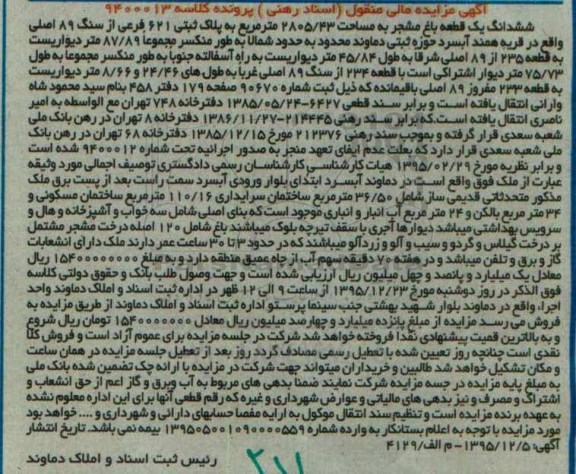 آگهی مزایده مالی منقول (اسناد رهنی) پرونده کلاسه ۹۴۰۰۰۱۳
ششدانگ یک قطعه باغ مشجر به مساحت ۲۸۰۵/۴۳ مترمربع به پلاک ثبتی ۶۲۱ فرعی از سنگ ۸۹ اصلی
واقع در قریه همند آبسرد حوزه ثبتی دماوند محدود به حدود شمالا به طور منکسر مجموعا ۸۷/۸۹ متر دیواریست
به قطعه ۲۳۵ از ۸۹ اصلی شرقا به طول ۴۵/۸۴ متر دیواریست به راه آسفالته جنوبا به طور منکسر مجموعا به طول
۷۵/۷۳ متر دیوار اشتراکی است با قطعه ۲۳۴ از سنگ ۸۹ اصلی غربا به طول های ۲۴/۴۶ و ۸/۶۶ متر دیواریست
به قطعه ۲۳۳ مفروز ۸۹ اصلی باقیمانده که ذیل ثبت شماره ۹۰۶۷۰ صفحه ۱۷۹ دفتر ۴۵۸ بنام سید محمود شاه
وارانی انتقال یافته است و برابر سند قطعی ۶۴۲۷-۱۳۸۵/۰۵/۲۴ دفترخانه ۷۴۸ تهران مع الواسطه به امیر
ناصری انتقال یافته است.که برابر سند رهنی ۲۱۴۴۴۵-۱۳۸۶/۱۱/۲۷ دفترخانه ۸ تهران در رهن بانک ملی
شعبه سعدی قرار گرفته و بموجب سند رهنی ۲۱۲۳۷۶ مورخ ۱۳۸۵/۱۲/۱۵ دفترخانه ۶۸ تهران در رهن بانک
ملی شعبه سعدی قرار دارد که بعلت عدم ایفای تعهد منجر به صدور اجرائیه تحت شماره ۹۴۰۰۰۱۲ شده است
و برابر نظریه مورخ ۱۳۹۵/۰۲/۲۹ هیات کارشناسی کارشناسان رسمی دادگستری توصیف اجمالی مورد وثیقه
عبارت از ملک فوق واقع است در دماوند آبسرد ابتدای بلوار ورودی آبسرد سمت راست بعد از پست برق ملک
مذکور متحدثاتی قدیمی ساز شامل ۳۶/۵۰ مترمربع ساختمان سرایداری ۱۱۰/۱۶ مترمربع ساختمان مسکونی و
۳۴ متر مربع بالکن و ۲۴ متر مربع آب انبار و انباری موجود است که بنای اصلی شامل سه خواب و آشپزخانه و هال و
سرویس بهداشتی میباشد دیوارها آجری با سقف تیرچه بلوک میباشند باغ شامل ۱۲۰ اصله درخت مشجر مشتمل
بر درخت گیلاس و گردو و سیب و آلو و زردآلو میباشند که در حدود ۳ تا ۳۰ ساعت عمر دارند ملک دارای انشعابات
گاز و برق و تلفن میباشد و در هفته ۷۰ دقیقه سهم آب از چاه عمیق منطقه دارد و به مبلغ ۱۵۴۰۰۰۰۰۰۰۰ ریال
معادل یک میلیارد و پانصد و چهل میلیون ریال ارزیابی شده است و جهت وصول طلب بانک و حقوق دولتی کلاسه
فوق الذکر در روز دوشنبه مورخ ۱۳۹۵/۱۲/۲۳ از ساعت ۹ الی ۱۲ ظهر در اداره ثبت اسناد و املاک دماوند واحد
اجرا، واقع در دماوند بلوار شهید بهشتی جنب سینما پرستو اداره ثبت اسناد و املاک دماوند از طریق مزایده به
فروش می رسد مزایده از مبلغ پانزده میلیارد و چهارصد میلیون ریال معادل ۱۵۴۰۰۰۰۰۰۰ تومان ریال شروع
و به بالاترین قیمت پیشنهادی نقدا فروخته خواهد شد شرکت در جلسه مزایده برای عموم آزاد است و فروش کلا
نقدی است چنانچه روز تعیین شده با تعطیل رسمی مصادف گردد روز بعد از تعطیل جلسه مزایده در همان ساعت
و مکان تشکیل خواهد شد طالبین و خریداران میتواند جهت شرکت در مزایده با ارائه چک تضمین شده بانک ملی
به مبلغ پایه مزایده در جسه مزایده شرکت نمایند ضمنا بدهی های مربوط به آب وبرق و گاز اعم از حق انشعاب و
اشتراک و مصرف و نیز بدهی های مالیاتی و عوارض شهرداری و غیره که رقم قطعی آنها برای این اداره معلوم نشده
به عهده برنده مزایده است و تنظیم سند انتقال موکول به ارایه مفصا حسابهای دارائی و شهرداری و .... خواهد بود
مورد مزایده با توجه به اعلام بستانکار به وارده شماره ۱۳۹۵۰۵۰۰۱۰۹۰۰۰۰۵۵۹ بیمه نمی باشد. تاریخ انتشار
آگهی: ۱۳۹۵/۱۲/۵- م الف/۴۱۲۹
رئیس ثبت اسناد و املاک دماوند